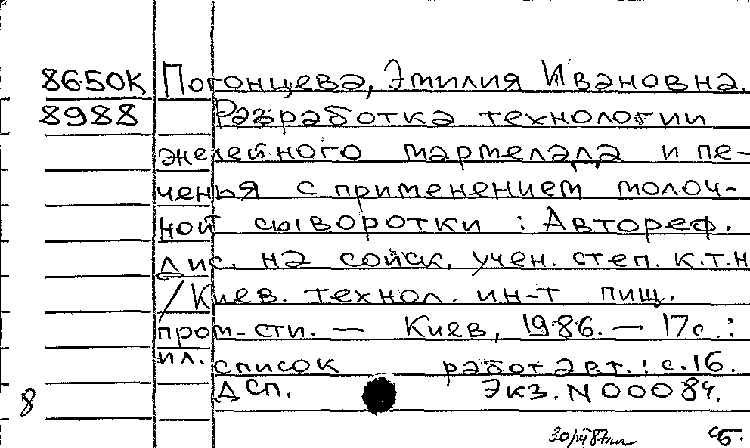 8650К Погонцева, Эмилия Ивановна.
8988 Разработка технологии
желейного мармелада и пе-
ченья с применением молоч-
ной сыворотки : Автореф.
дис. на соиск. учен. степ. к.т.н
/Киев. технол. ин-т пищ.
пром-сти. — Киев, 1986. — 17с. :
ил. список работ авт.: с.16.
ДСП. Экз. N 00084.
8
сб.